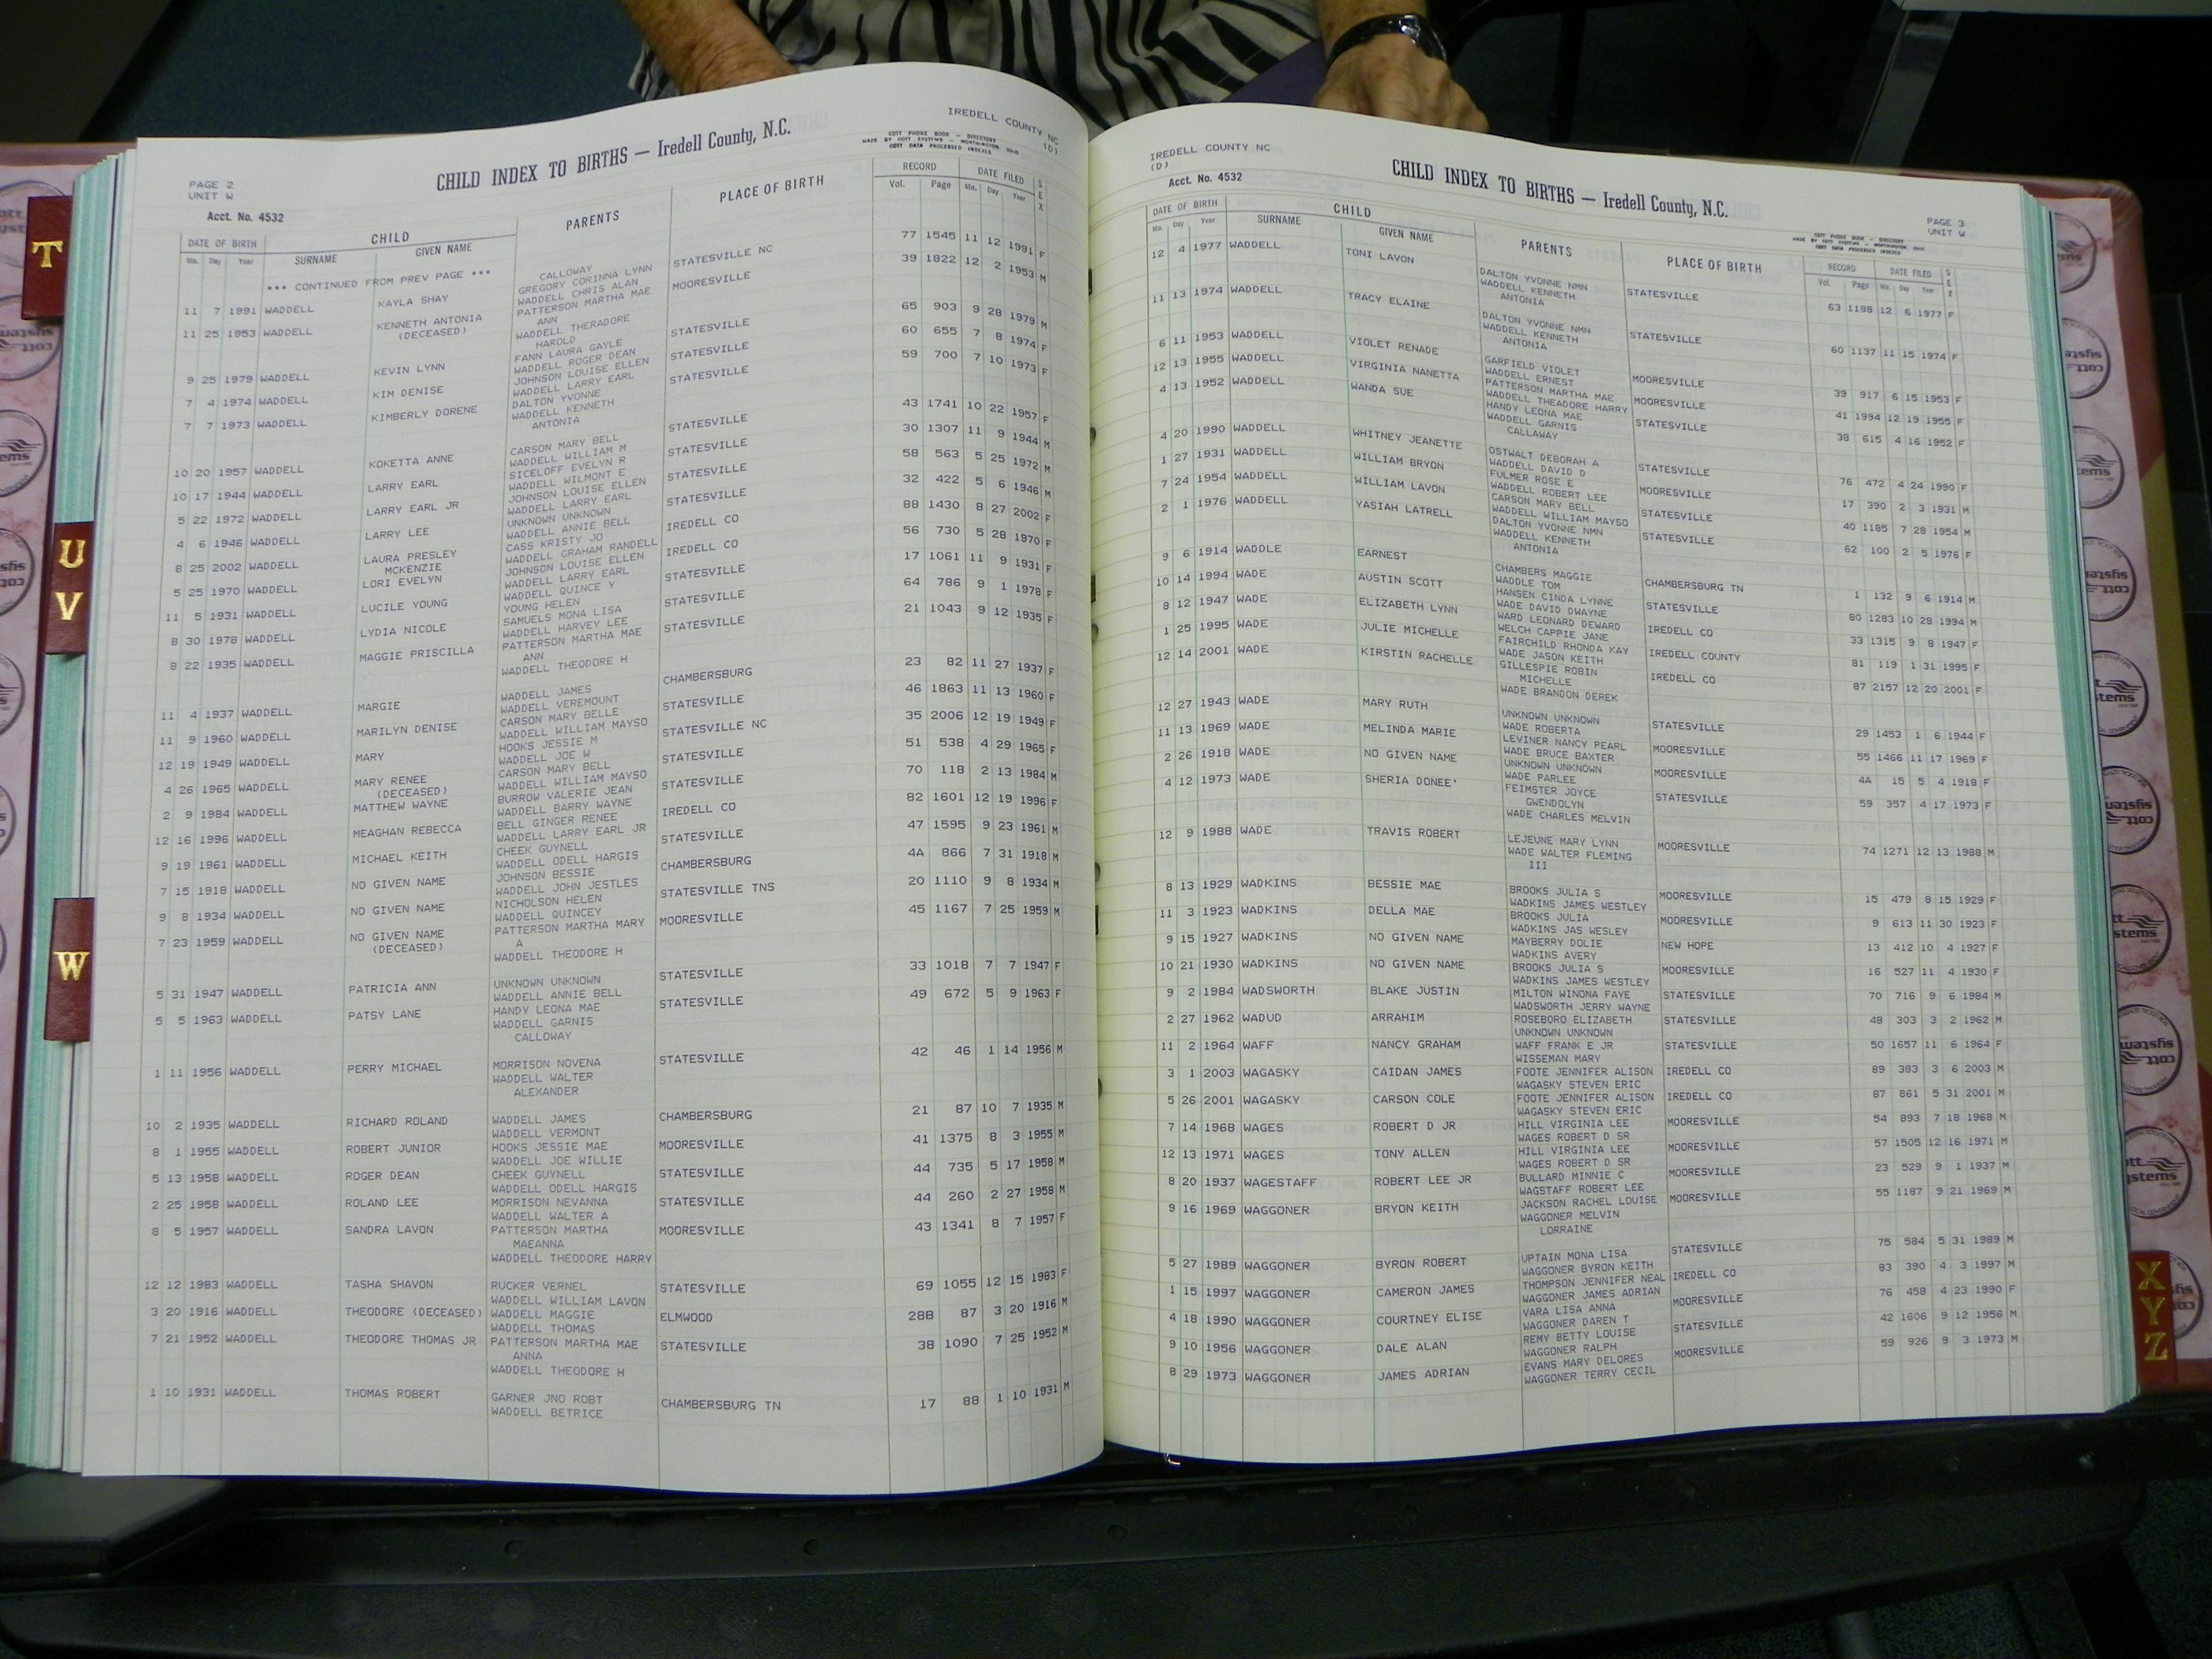 IREDELL COUNTY NC
(D)
PAGE 2
UNIT W
CHILD INDEX TO BIRTHS — Iredell County, N.C.
COTT PHONE BOOK — DIRECTORY
MADE BY COTT SYSTEMS — WORTHINGTON, OHIO
COTT DATA PROCESSED INDEXES
Acct. No. 4532
DATE OF BIRTH CHILD PARENTS PLACE OF BIRTH RECORD DATE FILED SEX
Mo. Day Year SURNAME GIVEN NAME Vol. Page Mo. Day Year
*** CONTINUED FROM PREV PAGE ***
CALLOWAY
11 7 1991 WADDELL KAYLA SHAY GREGORY CORINNA LYNN STATESVILLE NC 77 1545 11 12 1991 F
WADDELL CHRIS ALAN
11 25 1953 WADDELL KENNETH ANTONIA PATTERSON MARTHA MAE MOORESVILLE 39 1822 12 2 1953 M
(DECEASED) ANN
WADDELL THERADORE
HAROLD
9 25 1979 WADDELL KEVIN LYNN FANN LAURA GAYLE STATESVILLE 65 903 9 28 1979 M
WADDELL ROGER DEAN
7 4 1974 WADDELL KIM DENISE JOHNSON LOUISE ELLEN STATESVILLE 60 655 7 8 1974 F
WADDELL LARRY EARL
7 7 1973 WADDELL KIMBERLY DORENE DALTON YVONNE STATESVILLE 59 700 7 10 1973 F
WADDELL KENNETH
ANTONIA
10 20 1957 WADDELL KOKETTA ANNE CARSON MARY BELL STATESVILLE 43 1741 10 22 1957 F
WADDELL WILLIAM M
10 17 1944 WADDELL LARRY EARL SICELOFF EVELYN R STATESVILLE 30 1307 11 9 1944 M
WADDELL WILMONT E
5 22 1972 WADDELL LARRY EARL JR JOHNSON LOUISE ELLEN STATESVILLE 58 563 5 25 1972 M
WADDELL LARRY EARL
4 6 1946 WADDELL LARRY LEE UNKNOWN UNKNOWN STATESVILLE 32 422 5 6 1946 M
WADDELL ANNIE BELL
8 25 2002 WADDELL LAURA PRESLEY CASS KRISTY JO IREDELL CO 88 1430 8 27 2002 F
MCKENZIE WADDELL GRAHAM RANDELL
5 25 1970 WADDELL LORI EVELYN JOHNSON LOUISE ELLEN IREDELL CO 56 730 5 28 1970 F
WADDELL LARRY EARL
11 5 1931 WADDELL LUCILE YOUNG WADDELL QUINCE Y STATESVILLE 17 1061 11 9 1931 F
YOUNG HELEN
8 30 1978 WADDELL LYDIA NICOLE SAMUELS MONA LISA STATESVILLE 64 786 9 1 1978 F
WADDELL HARVEY LEE
8 22 1935 WADDELL MAGGIE PRISCILLA PATTERSON MARTHA MAE STATESVILLE 21 1043 9 12 1935 F
ANN
WADDELL THEODORE H
11 4 1937 WADDELL MARGIE WADDELL JAMES CHAMBERSBURG 23 82 11 27 1937 F
WADDELL VEREMOUNT
11 9 1960 WADDELL MARILYN DENISE CARSON MARY BELLE STATESVILLE 46 1863 11 13 1960 F
WADDELL WILLIAM MAYSO
12 19 1949 WADDELL MARY HOOKS JESSIE M STATESVILLE NC 35 2006 12 19 1949 F
WADDELL JOE W
4 26 1965 WADDELL MARY RENEE CARSON MARY BELL STATESVILLE 51 538 4 29 1965 F
(DECEASED) WADDELL WILLIAM MAYSO
2 9 1984 WADDELL MATTHEW WAYNE BURROW VALERIE JEAN STATESVILLE 70 118 2 13 1984 M
WADDELL BARRY WAYNE
12 16 1996 WADDELL MEAGHAN REBECCA BELL GINGER RENEE IREDELL CO 82 1601 12 19 1996 F
WADDELL LARRY EARL JR
9 19 1961 WADDELL MICHAEL KEITH CHEEK GUYNELL STATESVILLE 47 1595 9 23 1961 M
WADDELL ODELL HARGIS
7 15 1918 WADDELL NO GIVEN NAME JOHNSON BESSIE CHAMBERSBURG 4A 866 7 31 1918 M
WADDELL JOHN JESTLES
9 8 1934 WADDELL NO GIVEN NAME NICHOLSON HELEN STATESVILLE TNS 20 1110 9 8 1934 M
WADDELL QUINCEY
7 23 1959 WADDELL NO GIVEN NAME PATTERSON MARTHA MARY MOORESVILLE 45 1167 7 25 1959 M
(DECEASED) A
WADDELL THEODORE H
5 31 1947 WADDELL PATRICIA ANN UNKNOWN UNKNOWN STATESVILLE 33 1018 7 7 1947 F
WADDELL ANNIE BELL
5 5 1963 WADDELL PATSY LANE HANDY LEONA MAE STATESVILLE 49 672 5 9 1963 F
WADDELL GARNIS
CALLOWAY
1 11 1956 WADDELL PERRY MICHAEL MORRISON NOVENA STATESVILLE 42 46 1 14 1956 M
WADDELL WALTER
ALEXANDER
10 2 1935 WADDELL RICHARD ROLAND WADDELL JAMES CHAMBERSBURG 21 87 10 7 1935 M
WADDELL VERMONT
8 1 1955 WADDELL ROBERT JUNIOR HOOKS JESSIE MAE MOORESVILLE 41 1375 8 3 1955 M
WADDELL JOE WILLIE
5 13 1958 WADDELL ROGER DEAN CHEEK GUYNELL STATESVILLE 44 735 5 17 1958 M
WADDELL ODELL HARGIS
2 25 1958 WADDELL ROLAND LEE MORRISON NEVANNA STATESVILLE 44 260 2 27 1958 M
WADDELL WALTER A
8 5 1957 WADDELL SANDRA LAVON PATTERSON MARTHA MOORESVILLE 43 1341 8 7 1957 F
MAEANNA
WADDELL THEODORE HARRY
12 12 1983 WADDELL TASHA SHAVON RUCKER VERNEL STATESVILLE 69 1055 12 15 1983 F
WADDELL WILLIAM LAVON
3 20 1916 WADDELL THEODORE (DECEASED) WADDELL MAGGIE ELMWOOD 288 87 3 20 1916 M
WADDELL THOMAS
7 21 1952 WADDELL THEODORE THOMAS JR PATTERSON MARTHA MAE STATESVILLE 38 1090 7 25 1952 M
ANNA
WADDELL THEODORE H
1 10 1931 WADDELL THOMAS ROBERT GARNER JNO ROBT CHAMBERSBURG TN 17 88 1 10 1931 M
WADDELL BETRICE
IREDELL COUNTY NC
(D)
Acct. No. 4532
CHILD INDEX TO BIRTHS — Iredell County, N.C.
PAGE 3
UNIT W
COTT PHONE BOOK — DIRECTORY
MADE BY COTT SYSTEMS — WORTHINGTON, OHIO
COTT DATA PROCESSED INDEXES
DATE OF BIRTH CHILD PARENTS PLACE OF BIRTH RECORD DATE FILED SEX
Mo. Day Year SURNAME GIVEN NAME Vol. Page Mo. Day Year
12 4 1977 WADDELL TONI LAVON DALTON YVONNE NMN STATESVILLE 63 1188 12 6 1977 F
WADDELL KENNETH
ANTONIA
11 13 1974 WADDELL TRACY ELAINE DALTON YVONNE NMN STATESVILLE 60 1137 11 15 1974 F
WADDELL KENNETH
ANTONIA
6 11 1953 WADDELL VIOLET RENADE GARFIELD VIOLET MOORESVILLE 39 917 6 15 1953 F
WADDELL ERNEST
12 13 1955 WADDELL VIRGINIA NANETTA PATTERSON MARTHA MAE MOORESVILLE 41 1994 12 19 1955 F
WADDELL THEADORE HARRY
4 13 1952 WADDELL WANDA SUE HANDY LEONA MAE STATESVILLE 38 615 4 16 1952 F
WADDELL GARNIS
CALLAWAY
4 20 1990 WADDELL WHITNEY JEANETTE OSTWALT DEBORAH A STATESVILLE 76 472 4 24 1990 F
WADDELL DAVID D
1 27 1931 WADDELL WILLIAM BRYON FULMER ROSE E MOORESVILLE 17 390 2 3 1931 M
WADDELL ROBERT LEE
7 24 1954 WADDELL WILLIAM LAVON CARSON MARY BELL STATESVILLE 40 1185 7 28 1954 M
WADDELL WILLIAM MAYSO
2 1 1976 WADDELL YASIAH LATRELL DALTON YVONNE NMN STATESVILLE 62 100 2 5 1976 F
WADDELL KENNETH
ANTONIA
9 6 1914 WADDLE EARNEST CHAMBERS MAGGIE CHAMBERSBURG TN 1 132 9 6 1914 M
WADDLE TOM
10 14 1994 WADE AUSTIN SCOTT HANSEN CINDA LYNNE STATESVILLE 80 1283 10 28 1994 M
WADE DAVID DWAYNE
8 12 1947 WADE ELIZABETH LYNN WARD LEONARD DEWARD IREDELL CO 33 1315 9 8 1947 F
WELCH CAPPIE JANE
1 25 1995 WADE JULIE MICHELLE FAIRCHILD RHONDA KAY IREDELL COUNTY 81 119 1 31 1995 F
WADE JASON KEITH
12 14 2001 WADE KIRSTIN RACHELLE GILLESPIE ROBIN IREDELL CO 87 2157 12 20 2001 F
MICHELLE
WADE BRANDON DEREK
12 27 1943 WADE MARY RUTH UNKNOWN UNKNOWN STATESVILLE 29 1453 1 6 1944 F
WADE ROBERTA
11 13 1969 WADE MELINDA MARIE LEVINER NANCY PEARL MOORESVILLE 55 1466 11 17 1969 F
WADE BRUCE BAXTER
2 26 1918 WADE NO GIVEN NAME UNKNOWN UNKNOWN MOORESVILLE 4A 15 5 4 1918 F
WADE PARLEE
4 12 1973 WADE SHERIA DONEE' FEIMSTER JOYCE STATESVILLE 59 357 4 17 1973 F
GWENDOLYN
WADE CHARLES MELVIN
12 9 1988 WADE TRAVIS ROBERT LEJEUNE MARY LYNN MOORESVILLE 74 1271 12 13 1988 M
WADE WALTER FLEMING
III
8 13 1929 WADKINS BESSIE MAE BROOKS JULIA S MOORESVILLE 15 479 8 15 1929 F
WADKINS JAMES WESTLEY
11 3 1923 WADKINS DELLA MAE BROOKS JULIA MOORESVILLE 9 613 11 30 1923 F
WADKINS JAS WESLEY
9 15 1927 WADKINS NO GIVEN NAME MAYBERRY DOLIE NEW HOPE 13 412 10 4 1927 F
WADKINS AVERY
10 21 1930 WADKINS NO GIVEN NAME BROOKS JULIA S MOORESVILLE 16 527 11 4 1930 F
WADKINS JAMES WESTLEY
9 2 1984 WADSWORTH BLAKE JUSTIN MILTON WINONA FAYE STATESVILLE 70 716 9 6 1984 M
WADSWORTH JERRY WAYNE
2 27 1962 WADUD ARRAHIM ROSEBORO ELIZABETH STATESVILLE 48 303 3 2 1962 M
UNKNOWN UNKNOWN
11 2 1964 WAFF NANCY GRAHAM WAFF FRANK E JR STATESVILLE 50 1657 11 6 1964 F
WISSEMAN MARY
3 1 2003 WAGASKY CAIDAN JAMES FOOTE JENNIFER ALISON IREDELL CO 89 383 3 6 2003 M
WAGASKY STEVEN ERIC
5 26 2001 WAGASKY CARSON COLE FOOTE JENNIFER ALISON IREDELL CO 87 861 5 31 2001 M
WAGASKY STEVEN ERIC
7 14 1968 WAGES ROBERT D JR HILL VIRGINIA LEE MOORESVILLE 54 893 7 18 1968 M
WAGES ROBERT D SR
12 13 1971 WAGES TONY ALLEN HILL VIRGINIA LEE MOORESVILLE 57 1505 12 16 1971 M
WAGES ROBERT D SR
8 20 1937 WAGESTAFF ROBERT LEE JR BULLARD MINNIE C MOORESVILLE 23 529 9 1 1937 M
WAGSTAFF ROBERT LEE
9 16 1969 WAGGONER BRYON KEITH JACKSON RACHEL LOUISE MOORESVILLE 55 1187 9 21 1969 M
WAGGONER MELVIN
LORRAINE
5 27 1989 WAGGONER BYRON ROBERT UPTAIN MONA LISA STATESVILLE 75 584 5 31 1989 M
WAGGONER BYRON KEITH
1 15 1997 WAGGONER CAMERON JAMES THOMPSON JENNIFER NEAL IREDELL CO 83 390 4 3 1997 M
WAGGONER JAMES ADRIAN
4 18 1990 WAGGONER COURTNEY ELISE VARA LISA ANNA MOORESVILLE 76 458 4 23 1990 F
WAGGONER DAREN T
9 10 1956 WAGGONER DALE ALAN REMY BETTY LOUISE STATESVILLE 42 1606 9 12 1956 M
WAGGONER RALPH
8 29 1973 WAGGONER JAMES ADRIAN EVANS MARY DELORES MOORESVILLE 59 926 9 3 1973 M
WAGGONER TERRY CECIL
T
U
V
W
X
Y
Z